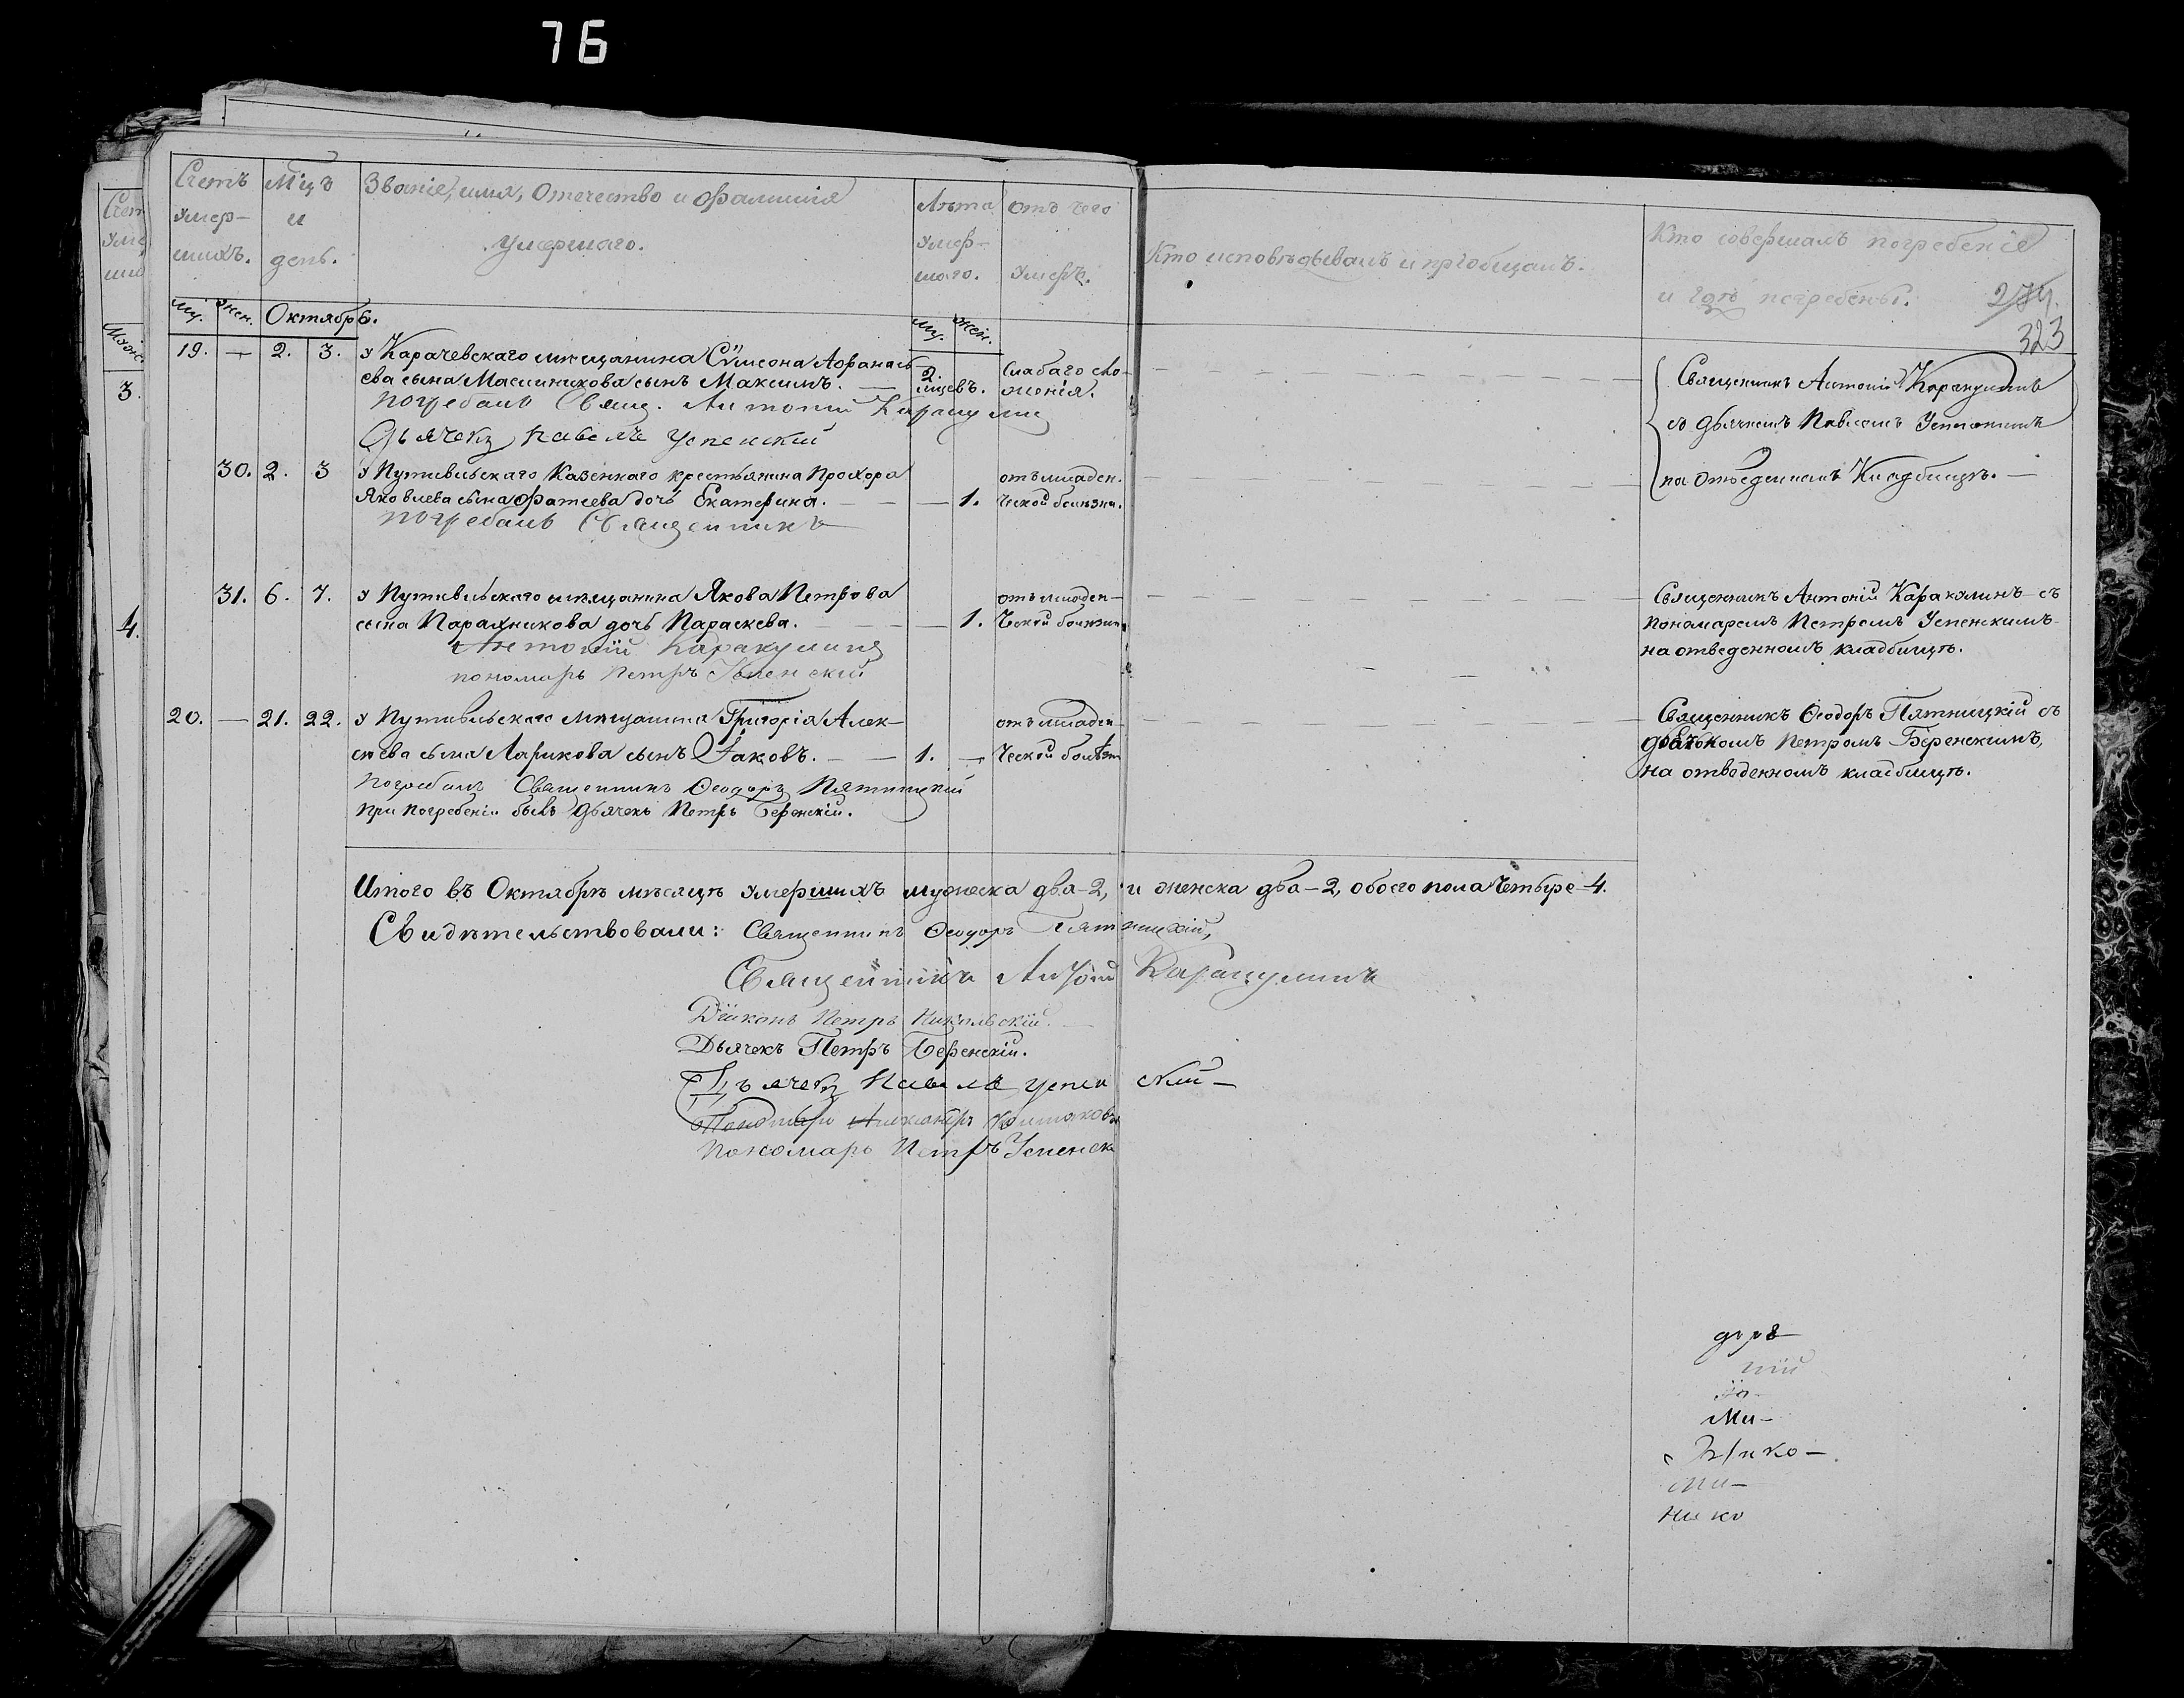 76
Счетъ умер-шихъ.
Мѣцъ и день.
Званіе, имя, Отечество и фамилія
умершаго.
Лѣта умер-шаго.
отъ чего умеръ.
Кто исповѣдывалъ и пріобщалъ.
Кто совершалъ погребеніе
и гдѣ погребены.
274.
323
му. жен. Октябрь. му. жен.
19. — 2. 3. у Карачевскаго мѣщанина Сѵмеона Афанасъ-
ева сына Масленикова сынъ Максимъ. — 2. мцевъ. слабаго сло-
женія.
погребалъ Свящ. Антоній Каракулинъ
Дьячекъ Павелъ Успенскій
Священникъ Антоній Каракулинъ
съ дьячкомъ Павломъ Успенскимъ
на отведенномъ Кладбищѣ. —
30. 2. 3 у Путивльскаго Казеннаго крестьянина Прохора
Яковлева сына Фатеева дочь Екатерина. — — 1. отъ младен.
ческой болѣзни.
погребалъ Священникъ
31. 6. 7. у Путивльскаго мѣщанина Якова Петрова
сына дочь Параскева. — 1. отъ младен-
ческой болѣзни
Антоній Каракулинъ
пономарь Петръ Успенскій
Священникъ Антоній Каракулинъ съ
пономаремъ Петромъ Успенскимъ
на отведенномъ кладбищѣ.
20. — 21. 22. у Путивльскаго мѣщанина Григорія Алек-
сѣева сына Ларикова сынъ Іаковъ. — — 1. — отъ младен-
ческой болѣзн
Погребалъ Священникъ Ѳеодоръ Пятницкій
при погребеніи былъ дьячекъ Петръ Беренскій.
Священникъ Ѳеодоръ Пятницкій съ
дьячкомъ Петромъ Беренскимъ,
на отведенномъ кладбищѣ.
3.
4.
Итого въ Октябрѣ мѣсяцѣ умершихъ мужеска два-2, и женска два-2, обоего пола четыре-4.
Свидѣтельствовали: Священникъ Ѳеодоръ Пятницкій,
Священникъ Антоній Каракулинъ
Діаконъ Петръ Никольскій. —
Дьячекъ Петръ Беренскій.
Дьячекъ Павелъ Успенскій —
Пономарь
Пономарь Петръ Успенск
Ми-
нико